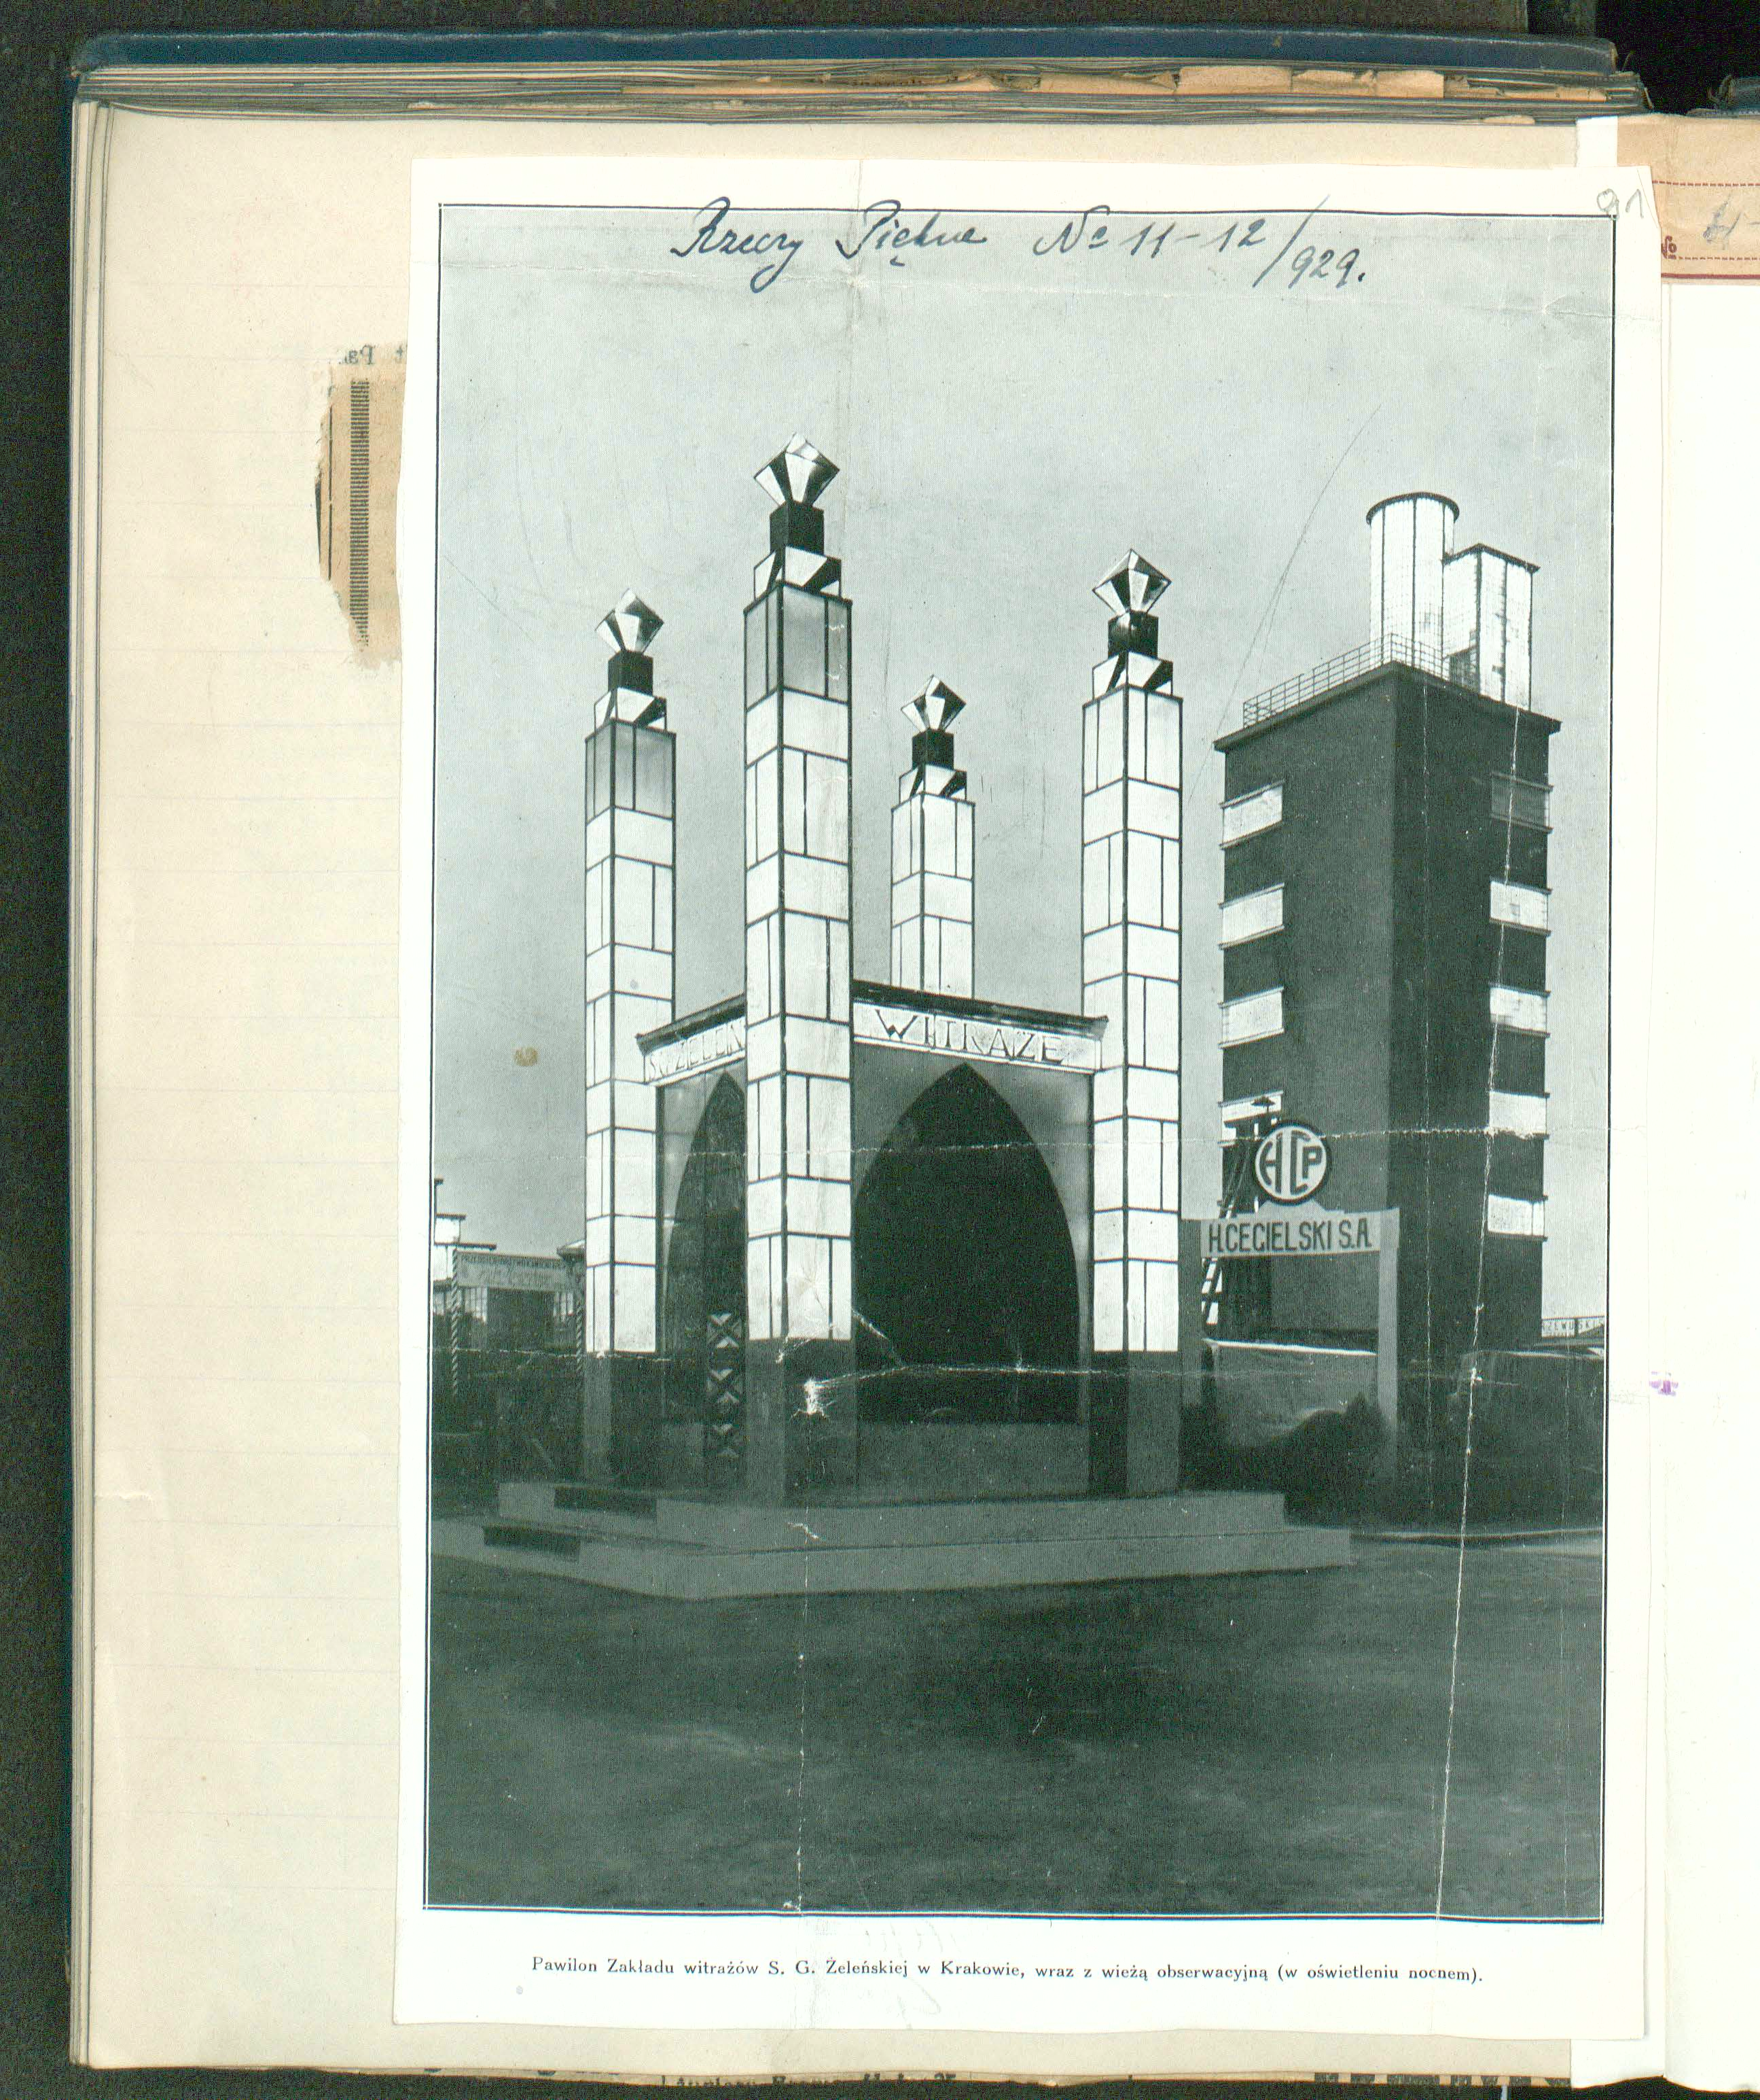 91
Rzeczy Piękne № 11-12/929.
№
WITRAŻE
HCP
H.CEGIELSKI S.A.
Pawilon Zakładu witrażów S. G. Żeleńskiej w Krakowie, wraz z wieżą obserwacyjną (w oświetleniu nocnem).